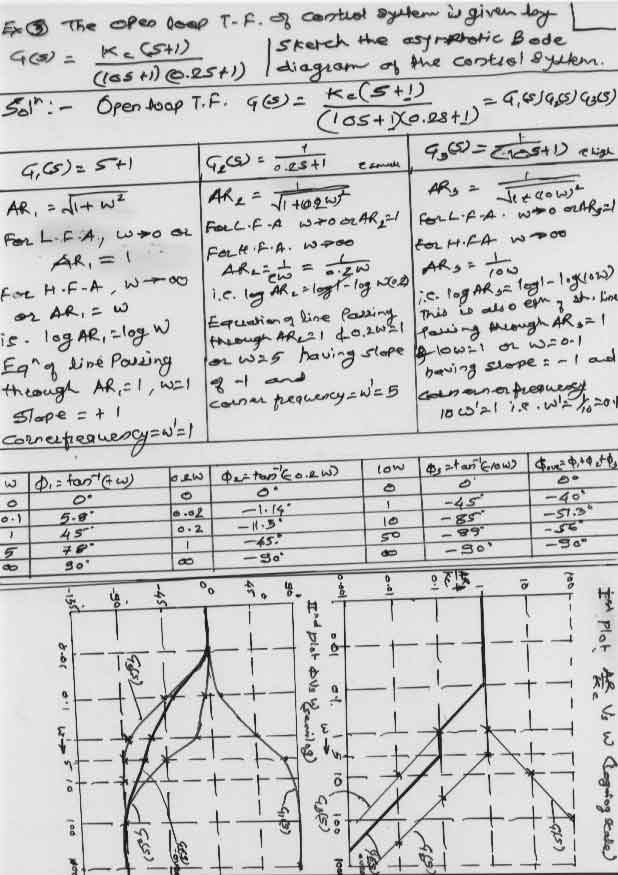 Ex ③ The open loop T.F. of control system is given by
G(s) = Kc(s+1) / (10s+1)(0.2s+1) | Sketch the asymptotic Bode diagram of the control system.
Solⁿ:- Open loop T.F. G(s) = Kc(s+1) / (10s+1)(0.2s+1) = G₁(s) G₂(s) G₃(s)
G₁(s) = s+1
AR₁ = √1+w²
For L.F.A, w→0 or
AR₁ = 1
For H.F.A, w→∞
or AR₁ = w
is. log AR₁ = log w
Eqⁿ of line Passing
through AR₁=1, w=1
Slope = +1
Corner frequency = w' = 1
G₂(s) = 1/0.2s+1
AR₂ = 1/√1+(0.2w)²
For L.F.A w→0 or AR₂=1
For H.F.A. w→∞
AR₂ = 1/τw = 1/0.2w
i.e. log AR₂ = log 1 - log w(0.2)
Equation of line Passing
through AR₂=1 & 0.2w=1
or w=5 having slope
of -1 and
corner frequency = w' = 5
G₃(s) = 1/(10s+1) τ high
AR₃ = 1/√1+(10w)²
For L.F.A. w→0 or AR₃=1
for H.F.A w→∞
AR₃ = 1/10w
i.e. log AR₃ = log 1 - log(10w)
This is also eqn of st. line
Passing through AR₃=1
& 10w=1 or w=0.1
having slope = -1 and
corner frequency
10w'=1 i.e. w'=1/10=0.1
w | φ₁=tan⁻¹(+w) | 0.2w | φ₂=tan⁻¹(-0.2w) | 10w | φ₃=tan⁻¹(-10w) | φ₁+φ₂+φ₃
0 | 0° | 0 | 0° | 0 | 0° | 0°
0.1 | 5.8° | 0.02 | -1.14° | 1 | -45° | -40°
1 | 45° | 0.2 | -11.3° | 10 | -85° | -51.3°
5 | 78° | 1 | -45° | 50 | -89° | -56°
∞ | 90° | ∞ | -90° | ∞ | -90° | -90°
Ist plot AR/Kc Vs w (log log scale)
AR/Kc
0.01 0.1 1 10 100
0.01 0.1 w→ 5 10 100
G₁(s)
G₂(s)
G₃(s)
IInd plot φ Vs w (semilog)
-135 -90 -45 0 45° 90°
0.01 0.1 w→ 5 10 100
G₁(s)
G₂(s)
G₃(s)